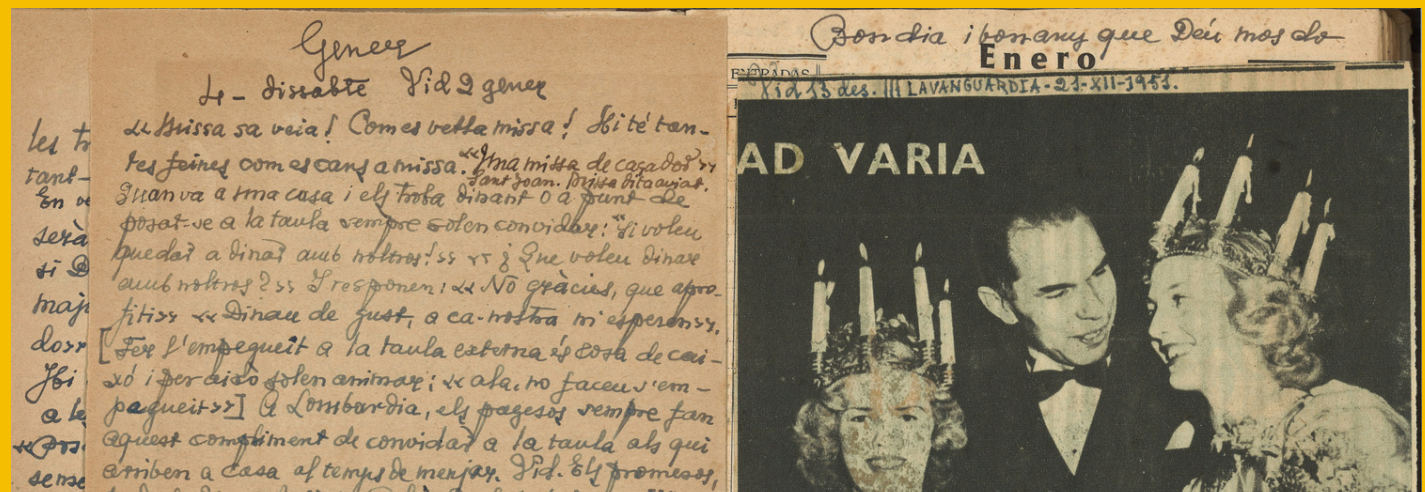 Gener
4 - dissabte Vid 2 gener
«Missa sa veia! Com es vetla missa! Hi té tan-
tes feines com es cans a missa. «Una missa de caçador»
Sant Joan. Missa dita aviat.
Quan va a una casa i els troba dinant o a punt de
posar-se a la taula sempre solen convidar: "Si voleu
quedar a dinar amb noltros!» «¿Que voleu dinar
amb noltros?» I responen: «No gràcies, que apro-
fiti» «Dinau de gust, a ca-nostra m'esperen».
[Fer l'empegueït a la taula externa és cosa de cai-
xó i per això solen animar: «ala, no faceu s'em-
pagueït»] A Lombardia, els pagesos sempre fan
aquest compliment de convidar a la taula als qui
arriben a casa al temps de menjar. Vid. Els promesos,
les
tant-
En
serà
si D
maj
do»
Hi
a le
sense
Bon dia i bon any que Déu mos do
Enero
ENTRADAS
Vid 13 des. ||| LA VANGUARDIA - 21-XII-1951.
AD VARIA